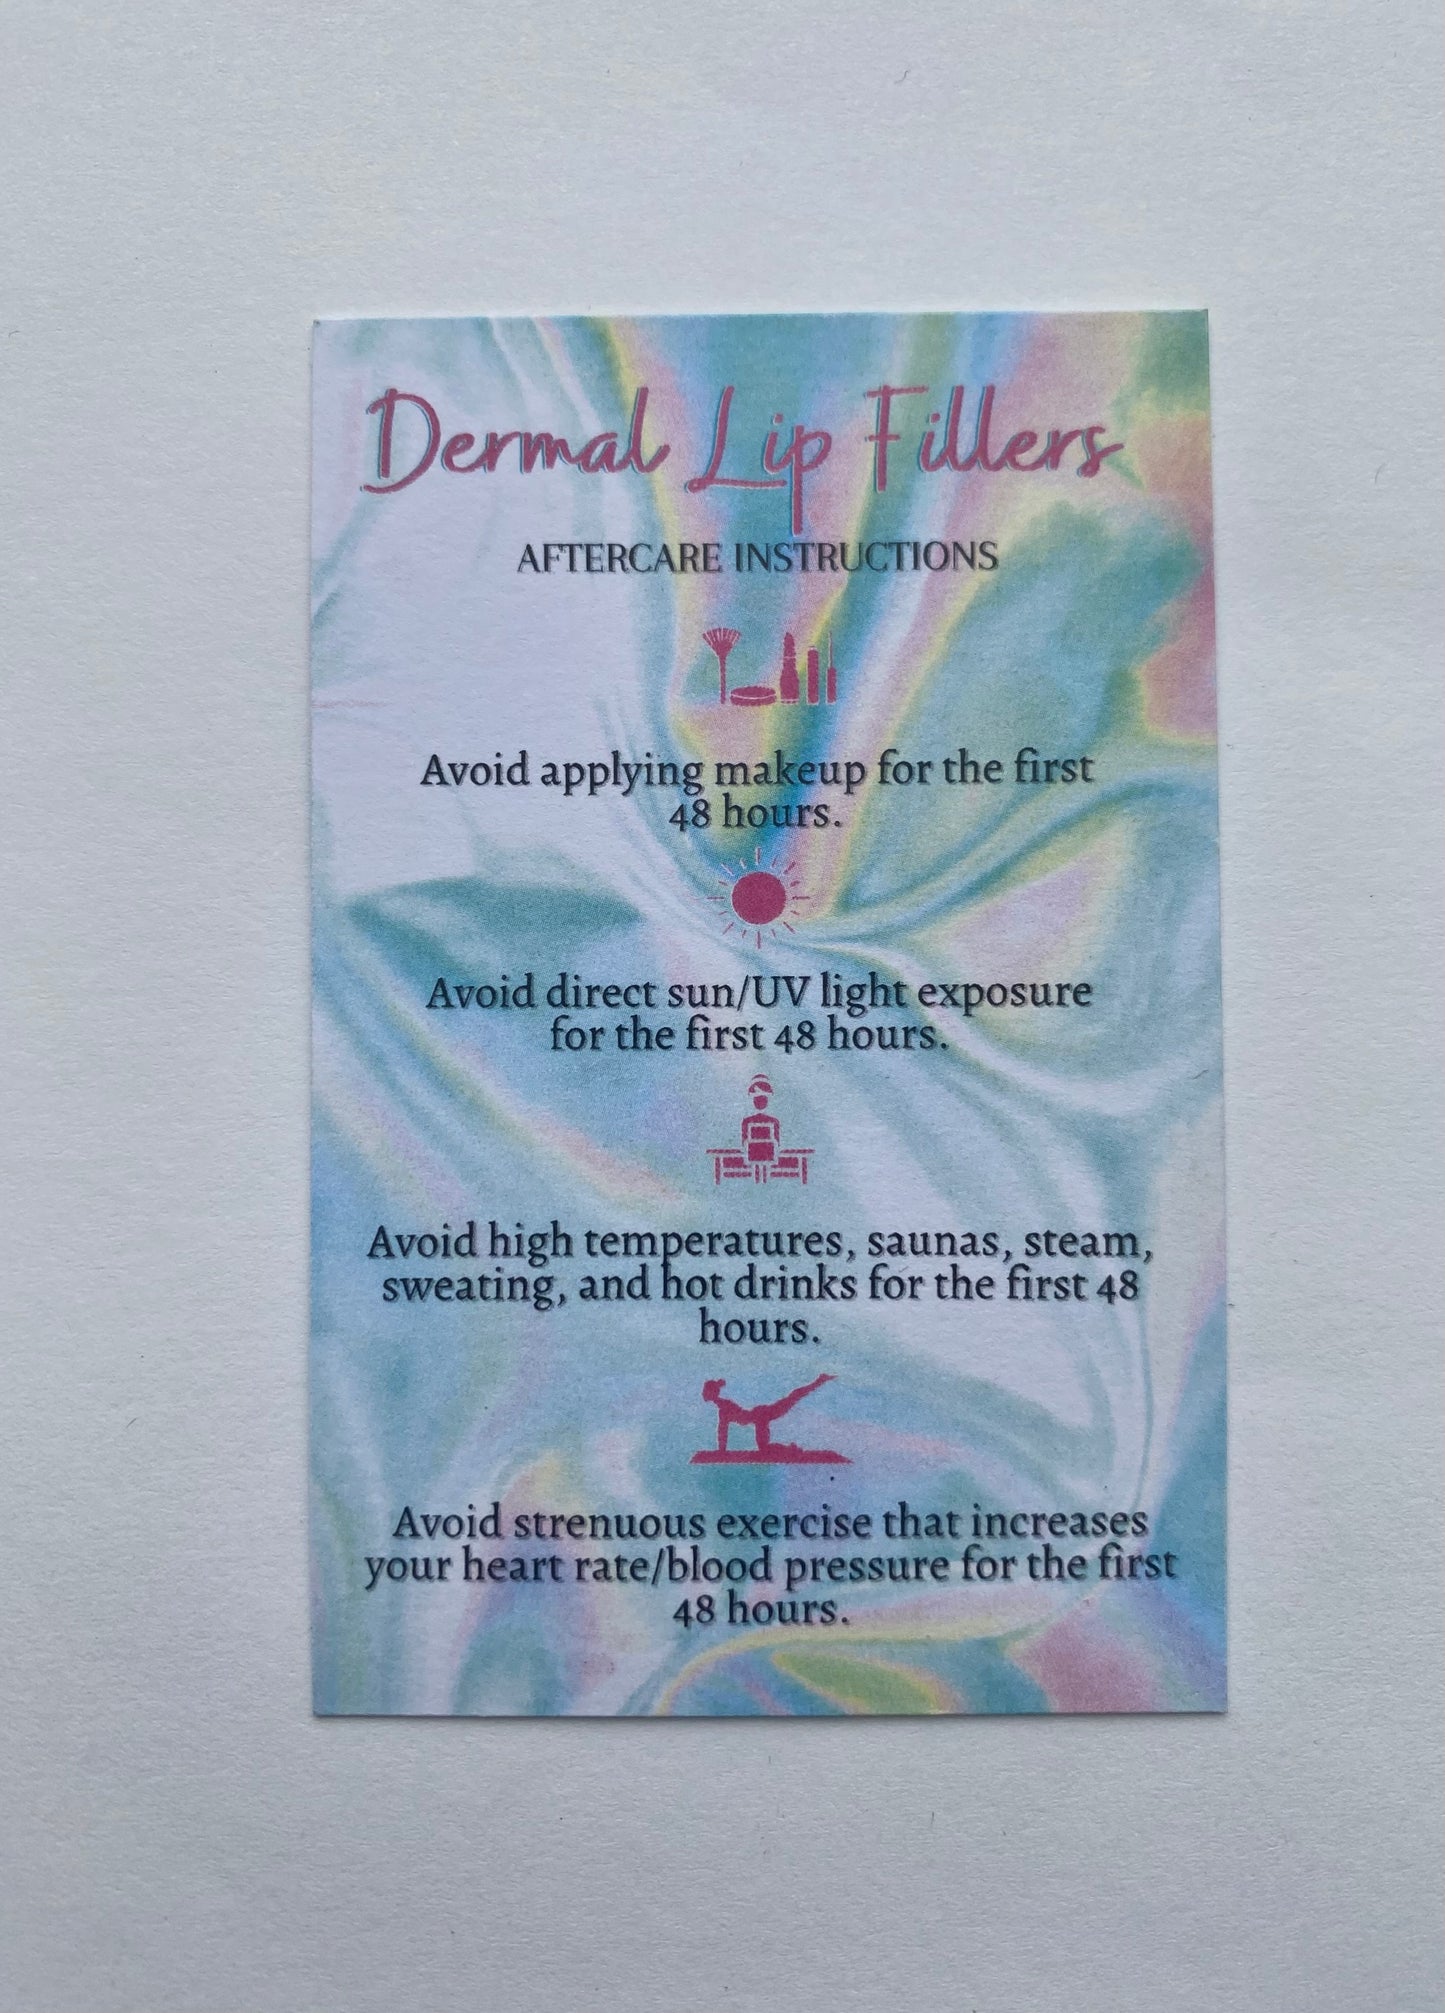 Dermal Lip Fillers
AFTERCARE INSTRUCTIONS
Avoid applying makeup for the first
48 hours.
Avoid direct sun/UV light exposure
for the first 48 hours.
Avoid high temperatures, saunas, steam,
sweating, and hot drinks for the first 48
hours.
Avoid strenuous exercise that increases
your heart rate/blood pressure for the first
48 hours.